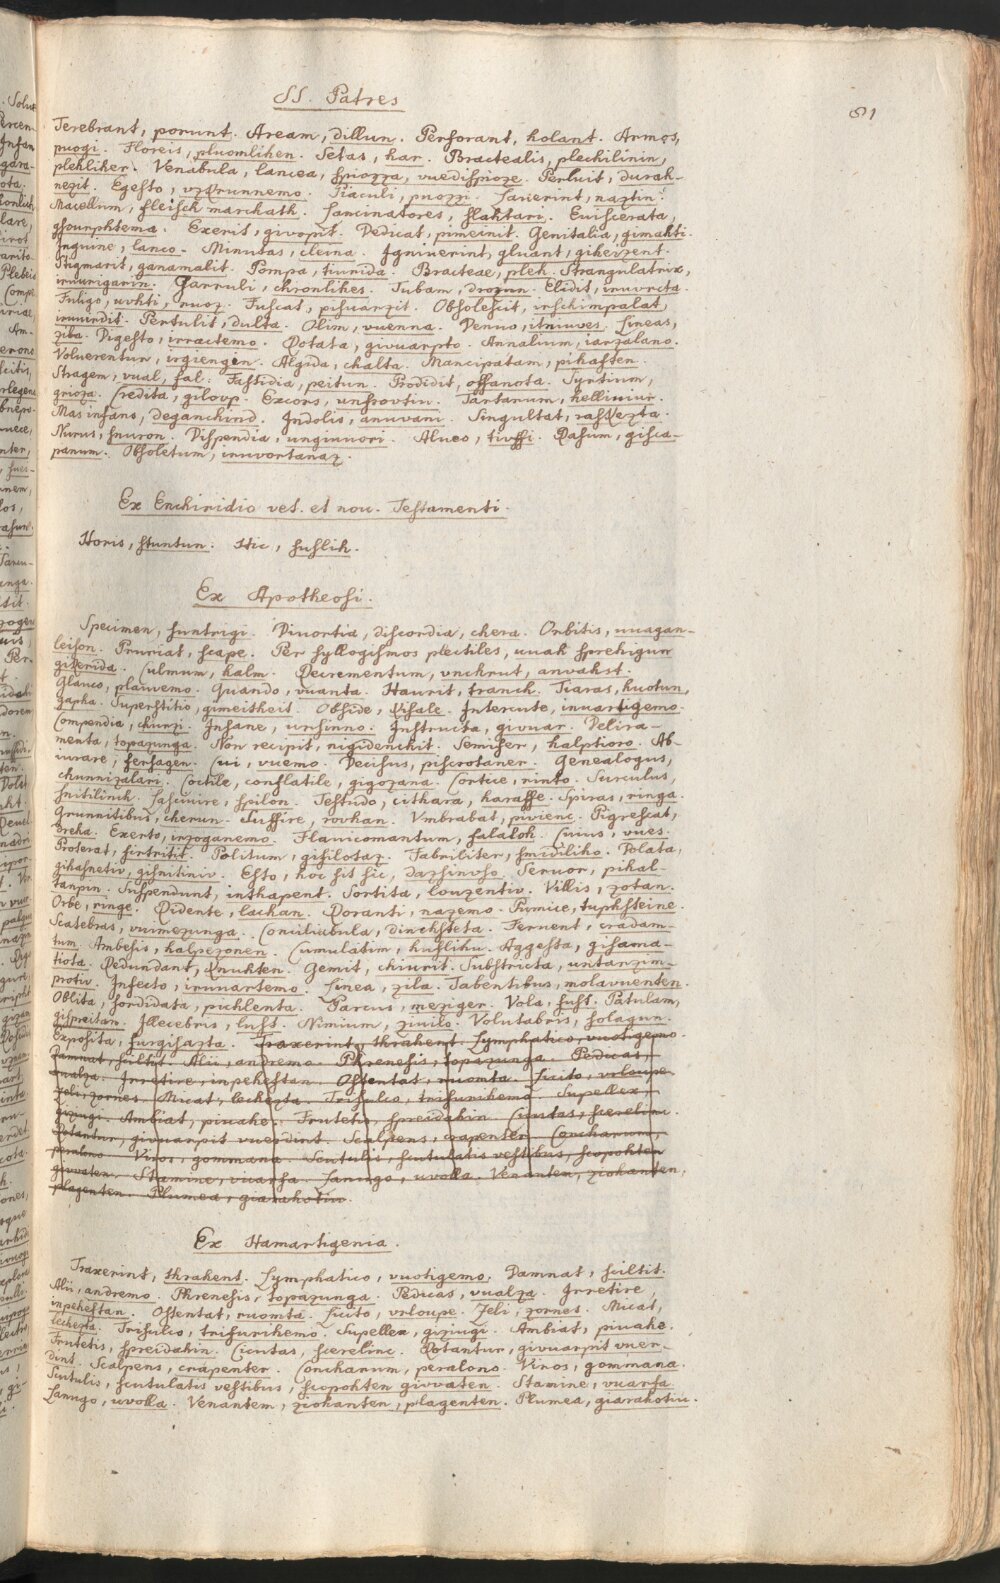 SS. Patres
81
Terebrant, porunt. Aream, dillun. Perforant, holant. Armos,
puogi. Floreis, pluomlihen. Setas, har. Bractealis, plechilinin,
plehliker. Venabula, lancea, spiozza, vuedispioze. Perluit, durah-
nezit. Egesto, vzdrunnemo. Piaculi, puozzi. Sanerint, naztin.
Macellum, fleisch marchath. Lancinatores, slahtari. Euiscerata,
Exerit, givopit. Dedicat, pimeinit. Genitalia, gimahti.
Inguine, lanco. Minutas, cleina. Igniuerint, gluant, giherzent.
Stigmarit, ganamalit. Pompa, tiurida. Bracteae, pleh. Strangulatrix,
irwurigarin. Garruli, chronlihes. Tubam, drozun. Elidit, inuurcta.
Fuligo, uuhti, ruoz. Fuscat, pisuarzit. Obsolescit, irschimpalat,
Pertulit, dulta. Olim, vuenna. Denuo, itniuves. Lineas,
zila. Digesto, irractemo. Dotata, givuarpto. Annalium, iarzalano.
Voluerentur, irgiengin. Algida, chalta. Mancipatam, pihaften.
Stragem, vual, fal. Fastidia, peitun. Prodidit, offanota. Syrtium,
grioza. Credita, giloup. Excors, unfrovtin. Tartarum, helliuiur.
Mas infans, deganchind. Indolis, anuvani. Singultat,
Nurus, snuron. Dispendia, unginuori. Alueo, tiuffi. Pasum, gisca-
panum. Obsoletum, inuvortanaz.
Ex Enchiridio vet. et nov. Testamenti.
Horis, stuntun. Hic, suslih.
Ex Apotheosi.
Specimen, suntrigi. Diuortia, discordia, chera. Orbitis, uuagan-
leison. Pruriat, scape. Per syllogismos plectiles, uuah sprehigun
giherida. Culmum, halm. Decrementum, vnchrut, anvahst.
Glauco, plauuemo. Quando, vuanta. Haurit, tranck. Tiaras, huotun,
zapha. Superstitio, gimeitheit. Obside, Intercute, inuartigemo.
Compendia, churzi. Insane, ursinno. Instructa, givuar. Delira-
menta, topazunga. Non recipit, nigidenchit. Semifer, halptioro. Ab-
iurare, fersagen. Cui, vuemo. Decisus, piscrotaner. Genealogus,
chunnizalari. Coctile, conflatile, gigozana. Cortice, rinto. Surculus,
snitilinch. Lasciuire, spilon. Testudo, cithara, haraffe. Spiras, ringa.
Grunnitibus, cherun. Suffire, rovhan. Vmbrabat, pivienc. Pigrescat,
Exerto, inzoganemo. Flauicomantum, falaloh. Cuius, vues.
Proserat, firtritit. Politum, gifilotaz. Fabriliter, smidiliho. Dolata,
gihasnetiv, gisnitiniv. Esto, hoc sit sic, daz si nuso. Seruor, pihal-
tanpin. Suspendunt, inthapent. Sortita, louzentiv. Villis, zotan.
Orbe, ringe. Ridente, lachan. Roranti, nazemo. Pumice, tuphsteine.
Scatebras, vuimezunga. Conciliabula, dinchsteta. Feruent, cradam-
tum. Ambesis, halpezonen. Cumulatim, husliku. Aggesta, gisama-
tiota. Redundant, Gemit, chiurit. Substricta, untanzim-
protiv. Infecto, irunartemo. Linea, zila. Tabentibus, molavuenten.
Oblita, sordidata, pichlenta. Parcus, meziger. Vola, fust. Patulam,
gispreitan. Illecebris, lust. Nimium, zuvilo. Volutabris, solagun.
Exposita, furgisazta. Traxerint, thrahent. Lymphatico, vuotigemo.
Damnat, sciltit. Alii, andremo. Phrenesis, topazunga. Pedicas,
vualza. Irretire, inpeheftan. Ostentat, ruomta. Licito, vrloupe.
Zeli, zornes. Micat, lechezta. Trisulco, trisurihemo. Supellex,
giziugi. Ambiat, piuahe. Frutetis, spreidahin. Cicutas, scerelinc.
Dotantur, givuarpit vuerdint. Scalpens, crapenter. Concharum,
peralono. Viros, gommana. Scutulis, scutulatis vestibus, scopohten
givvaten. Stamine, vuarfa. Lanugo, uvolla. Venanten, ziohanten,
plagenten. Plumea, giarahotiu.
Ex Hamartigenia.
Traxerint, thrahent. Lymphatico, vuotigemo. Damnat, sciltit.
Alii, andremo. Phrenesis, topazunga. Pedicas, vualza. Irretire,
inpeheftan. Ostentat, ruomta. Licito, vrloupe. Zeli, zornes. Micat,
lechezta. Trisulco, trisurihemo. Supellex, giziugi. Ambiat, piuahe.
Frutetis, spreidahin. Cicutas, scerelinc. Dotantur, givuarpit vuer-
dint. Scalpens, crapenter. Concharum, peralono. Viros, gommana.
Scutulis, scutulatis vestibus, scopohten givvaten. Stamine, vuarfa
Lanugo, uvolla. Venantem, ziohanten, plagenten. Plumea, giarahotiu.